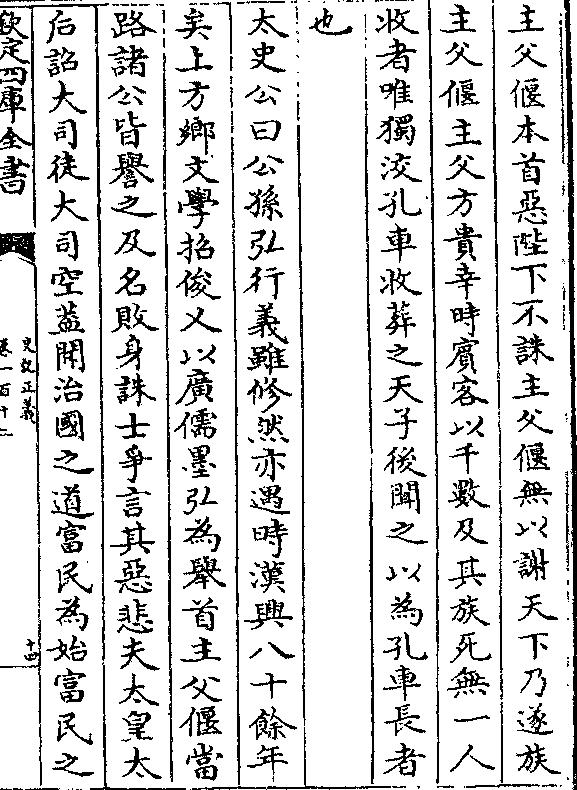 主父偃本首惡陛下不誅主父偃無以謝天下乃遂族
主父偃主父方貴幸時賓客以千數及其族死無一人
收者唯獨洨孔車收葬之天子後聞之以為孔車長者
也
太史公曰公孫弘行義雖修然亦遇時漢興八十餘年
矣上方鄉文學招俊乂以廣儒墨弘為舉首主父偃當
路諸公皆譽之及名敗身誅士爭言其惡悲夫太皇太
后詔大司徒大司空蓋聞治國之道富民為始富民之
欽定四庫全書
史記正義
卷一百十二
十四